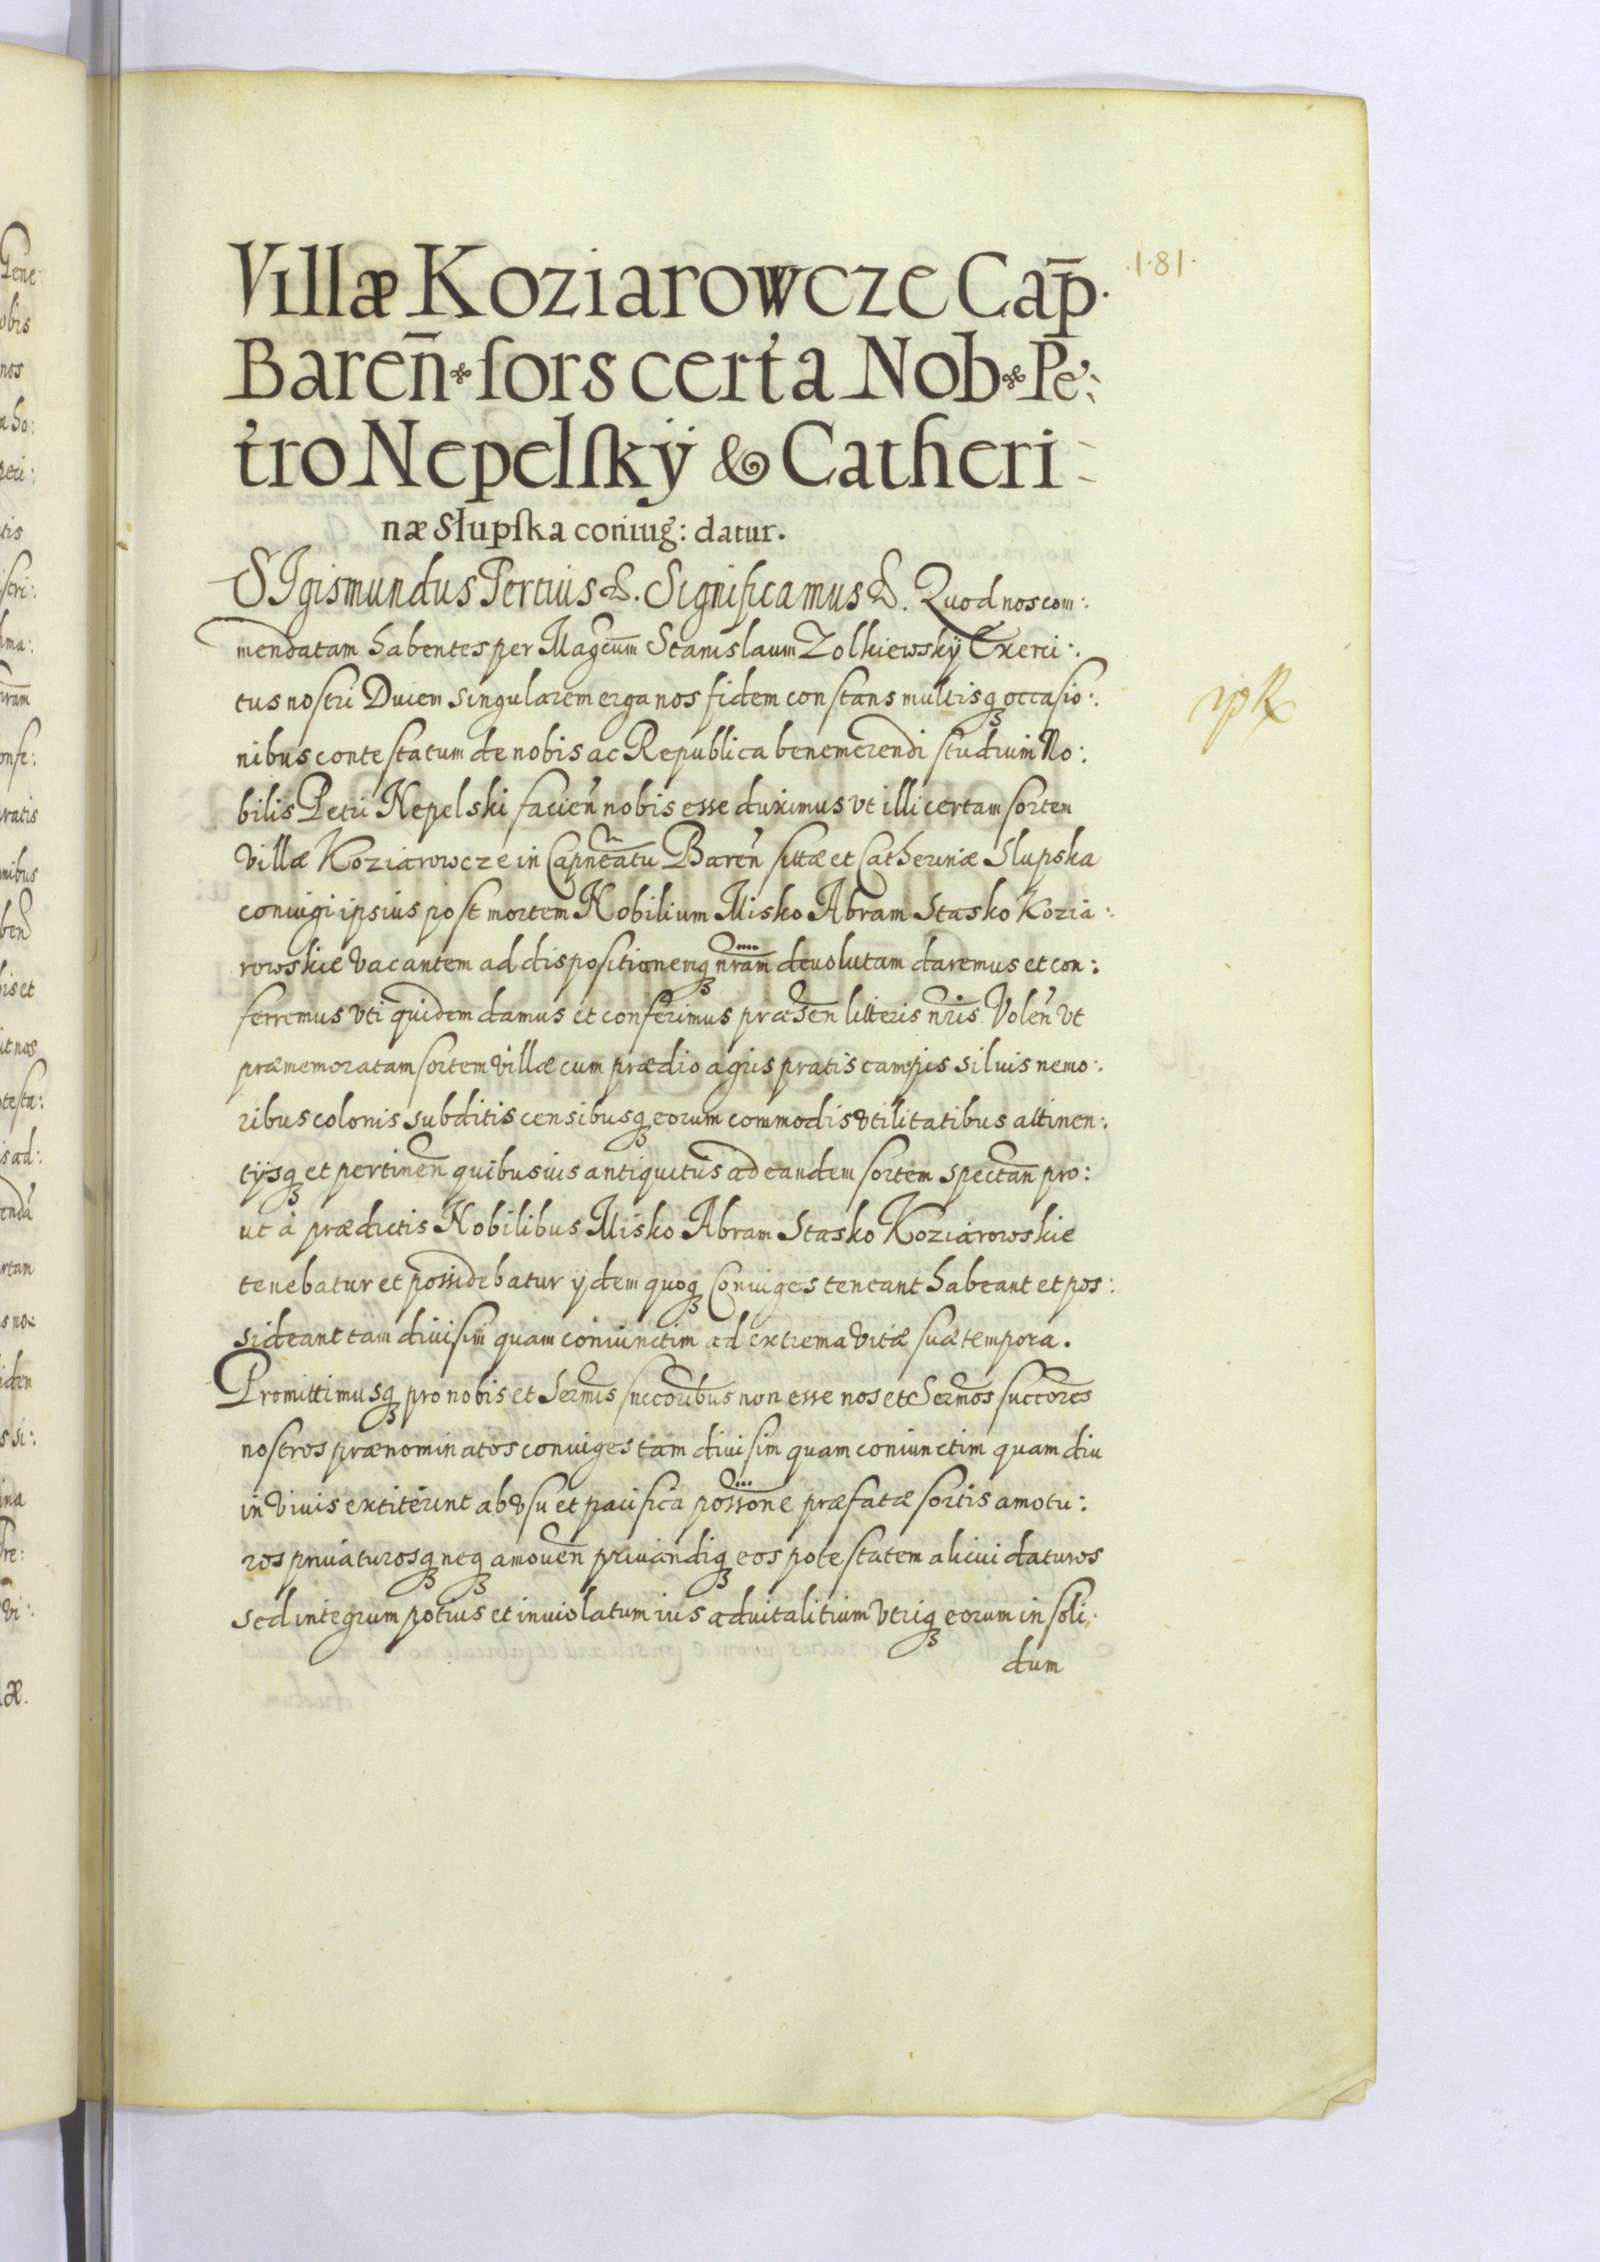 ·181·
Villæ Koziarowcze Cap̄·
Bareñ · sors certa Nob · Pe
tro Nepelskÿ & Catheri
næ Słupska coniug: datur.
SIgismundus Tertius &. Significamus &. Quod nos com:
mendatam habentes per Magcum Stanislaum Zolkiewskÿ Exerci:
tus nostri Ducem singularem erga nos fidem constans multisq occasio:
nibus contestatum de nobis ac Republica benemerendi studium No:
bilis Petri Nepelski facien nobis esse duximus vt illi certam sortem
villæ Koziarowcze in Capneatu Baren sittæ et Catherinæ Slupska
coniugi ipsius post mortem Nobilium Misko Abram Stasko Kozia:
rowskie vacantem ad dispositionemq nram deuolutam daremus et con:
ferremus vti quidem damus et conferimus præsen litteris nris. Volen vt
præmemoratam sortem villæ cum prædio agris pratis campis siluis nemo:
ribus colonis subditis censibusq eorum commodis vtilitatibus attinen:
tÿsq et pertinen quibusuis antiquitus ad eandem sortem spectan pro:
ut à prædictis Nobilibus Misko Abram Stasko Koziarowskie
tenebatur et possidebatur ÿdem quoq Coniuges teneant habeant et pos:
sideant tam diuisim quam coniunctim ad extrema vitæ suæ tempora.
Promittimusq pro nobis et Sermis succoribus non esse nos et Sermos succores
nostros prænominatos coniuges tam diuisim quam coniunctim quam diu
in viuis extiterint ab vsu et pacifica possone præfatæ sortis amotu:
ros priuaturosq neq amouen priuandiq eos potestatem alicui daturos
sed integrum potius et inuiolatum ius aduitalitium vtriq eorum in soli
dum